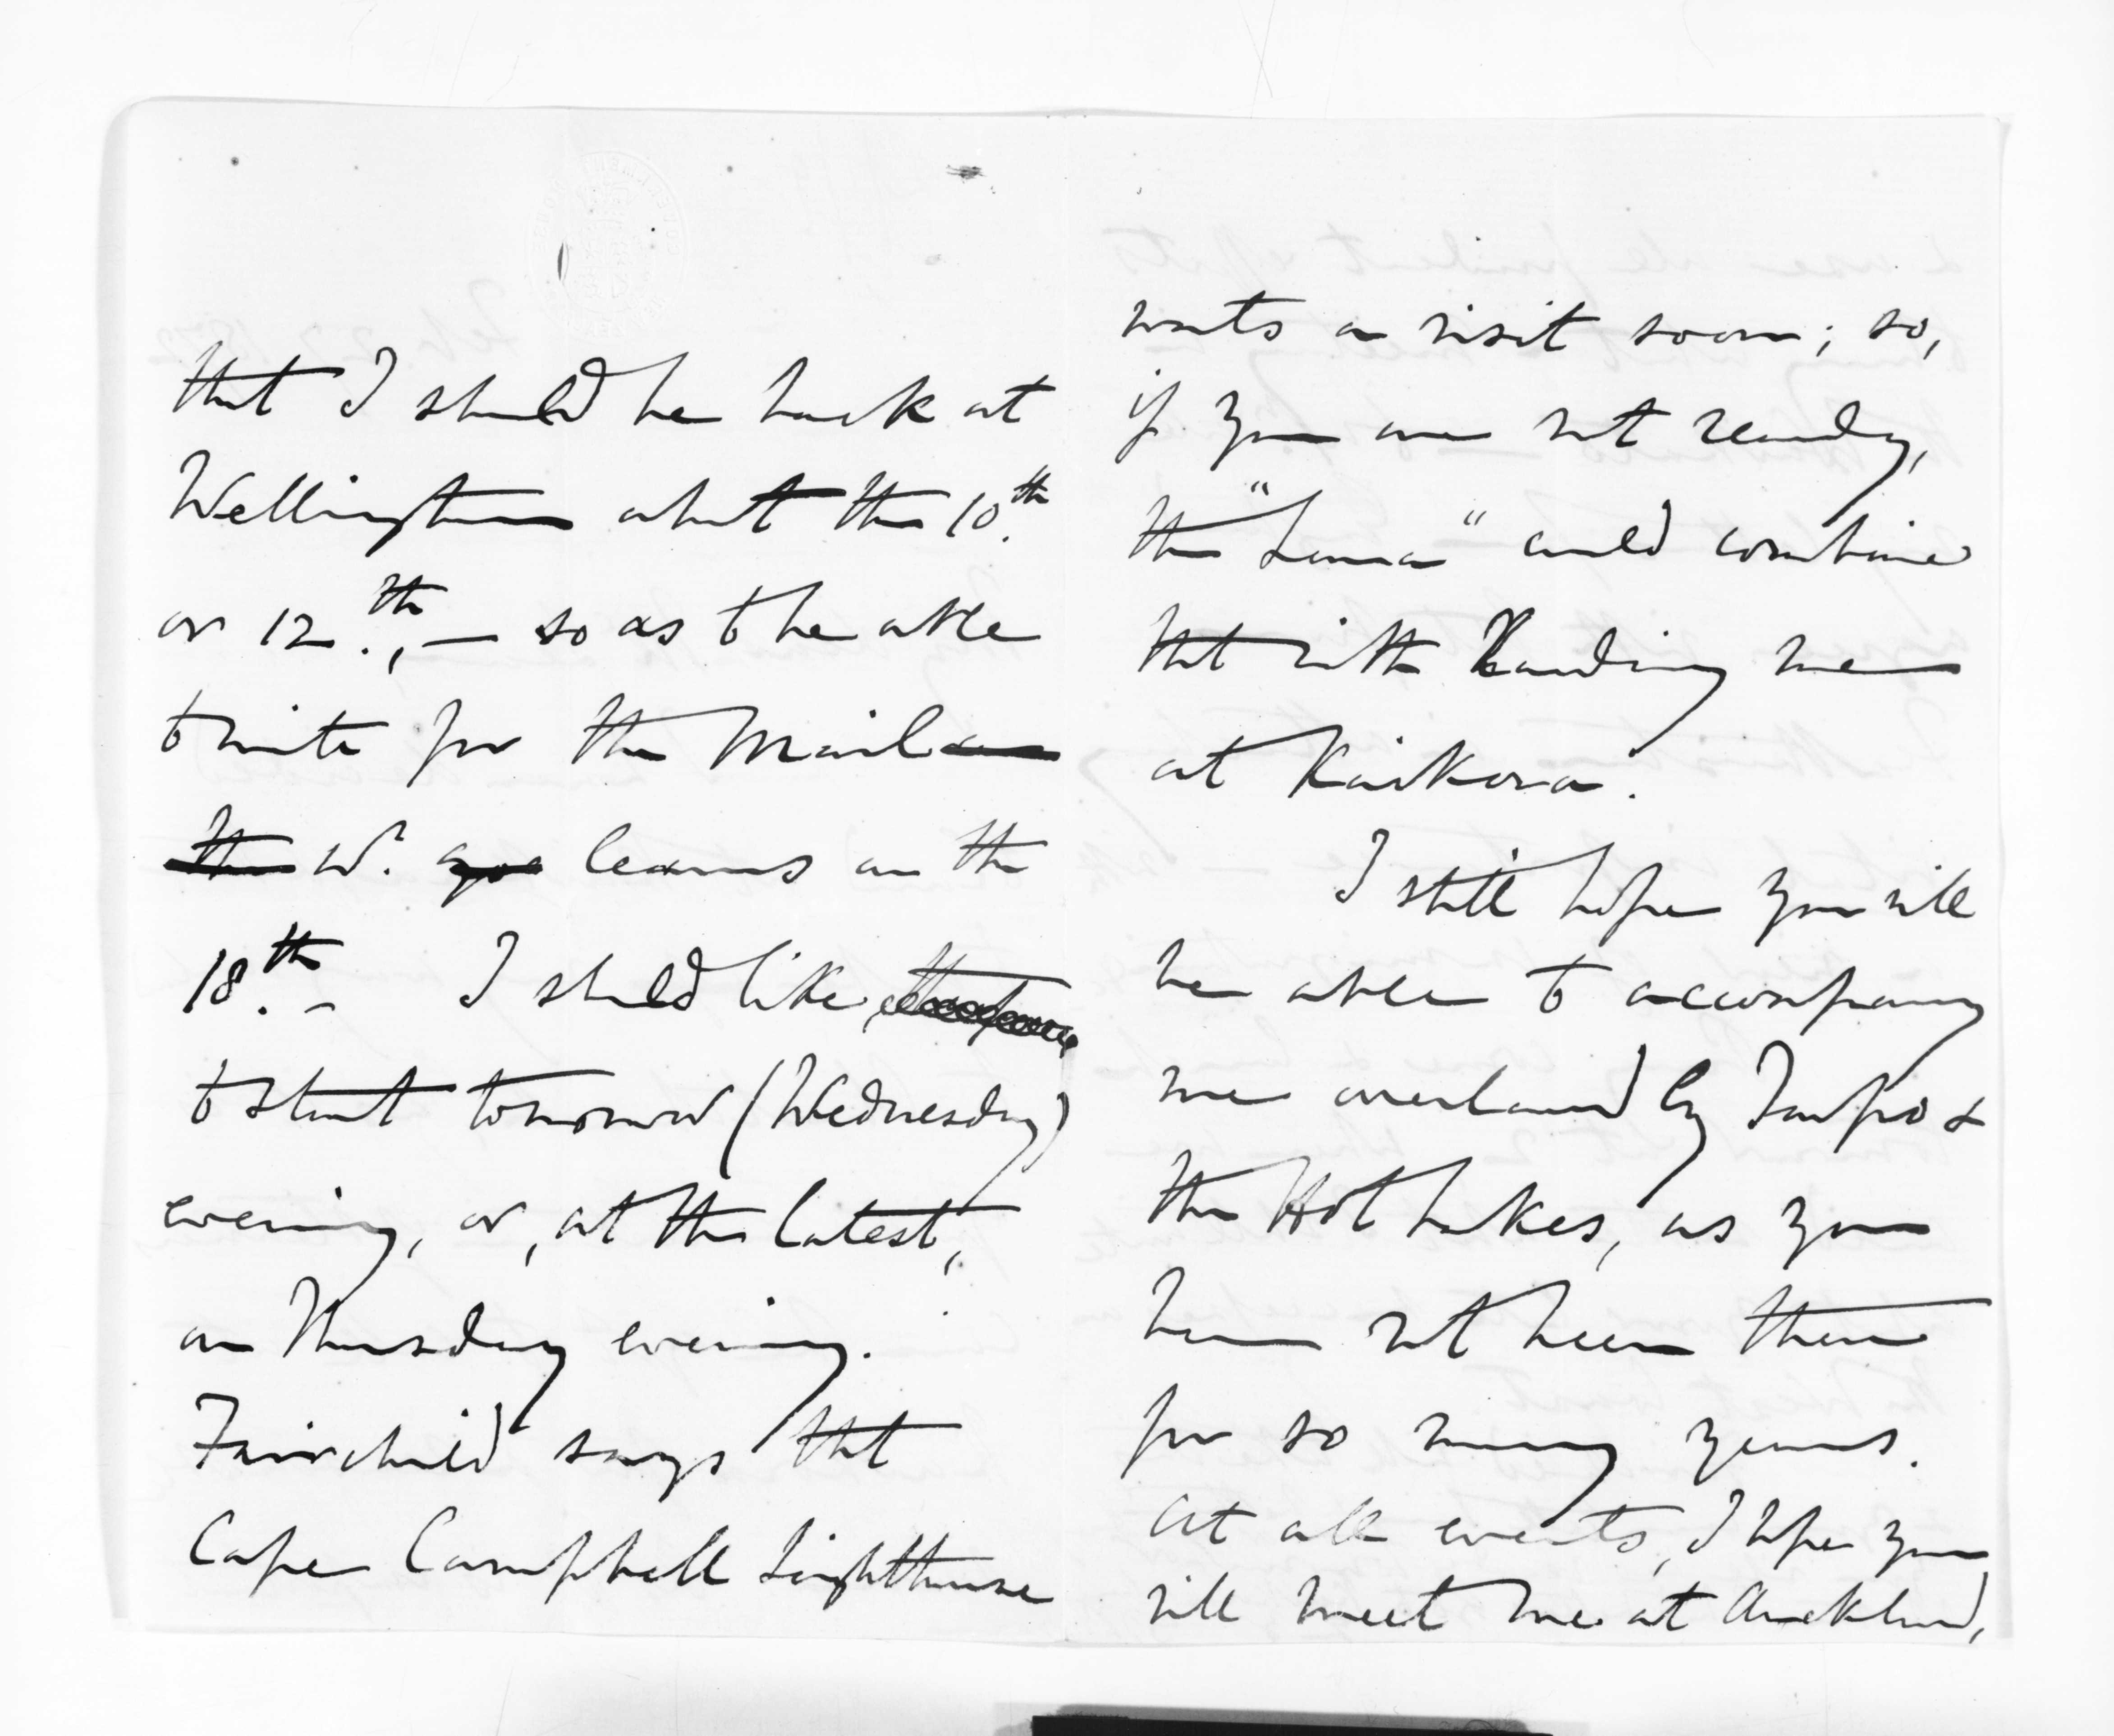 that I should be back at
Wellington about the 10th.
or 12th., — so as to be able
to write for the Mail
wh. leaves on the
18th. – I should like
to start tomorrow (Wednesday)
evening, or, at the latest,
on Thursday evening.
Fairchild says that
Cape Campbell Lighthouse
wants a visit soon; so,
if you are not ready,
the "Luna" could combine
that with landing me
at Kaikora.
I still hope you will
be able to accompany
me overland by Taupo &
the Hot Lakes, as you
have not been there
for so many years.
At all events, I hope you
will meet me at Auckland,